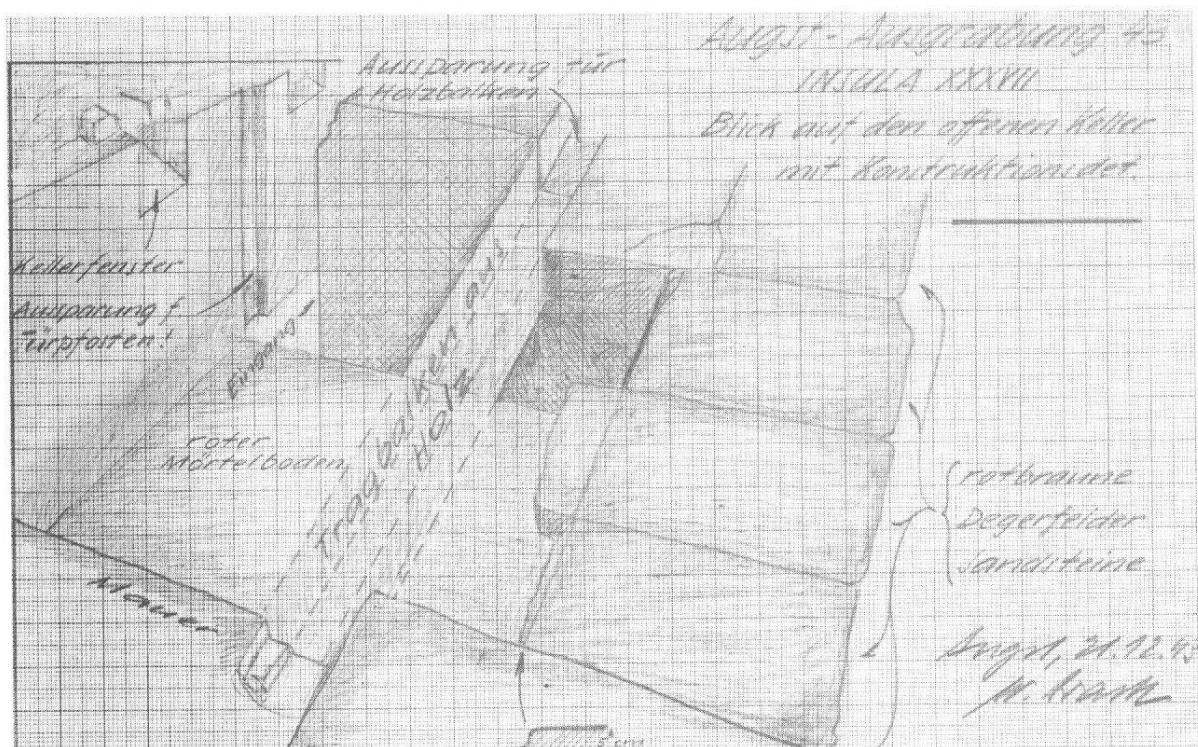 Augst-Ausgrabung 43
INSULA XXXVII
Blick auf den offenen Keller
mit Konstruktionsdet.
Aussparung für
Holzbalken
Kellerfenster
Aussparung f.
Türpfosten!
Eingang
roter
Mörtelboden
Tragbalken aus
Holz
Mauer
rotbraune
Degerfelder
Sandsteine
Augst, 21.12.43
cm